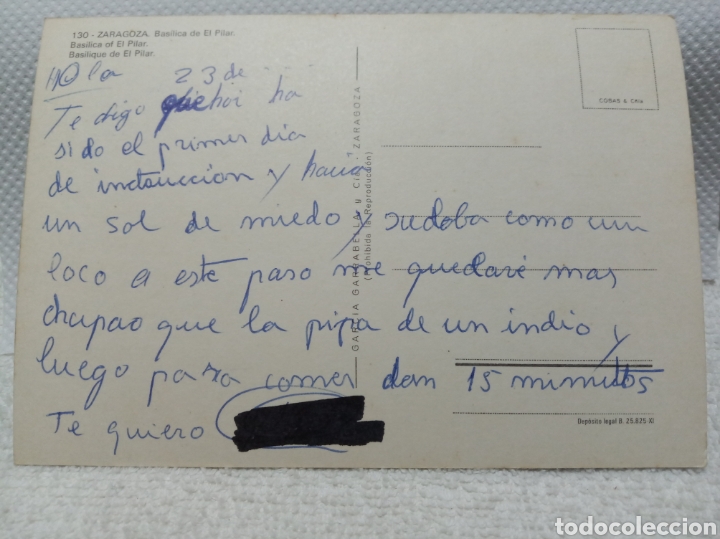 130 - ZARAGOZA. Basílica de El Pilar.
Basilica of El Pilar.
Basilique de El Pilar.
COBAS & Cría
HOla 23 de
Te digo que hoi ha
sido el primer dia
de instrucción y hacia
un sol de miedo y sudaba como un
loco a este paso me quedaré mas
chapao que la pipa de un indio y
luego para comer dan 15 minutos
Te quiero
GARCIA GARRABELLA y Cía. - ZARAGOZA
(Prohibida la Reproducción)
Depósito legal B. 25.825-XI
todocoleccion